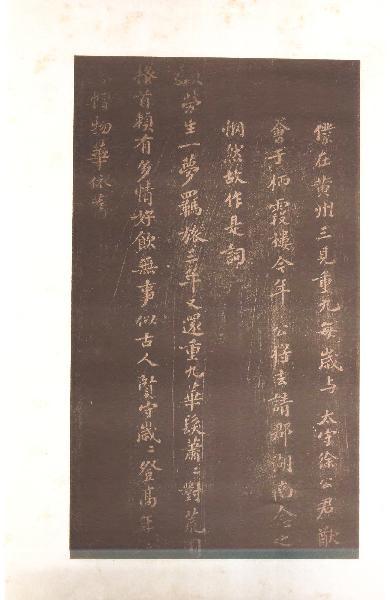 僕在黃州三見重九每歲与太守徐公君猷
會于栖霞樓今年公將去請郡湖南念之
惘然故作是詞
笑勞生一夢羈旅三年又還重九華髮蕭〻對荒園
搔首賴有多情好飲無事似古人賢守歲〻登高年〻
帽物華依舊